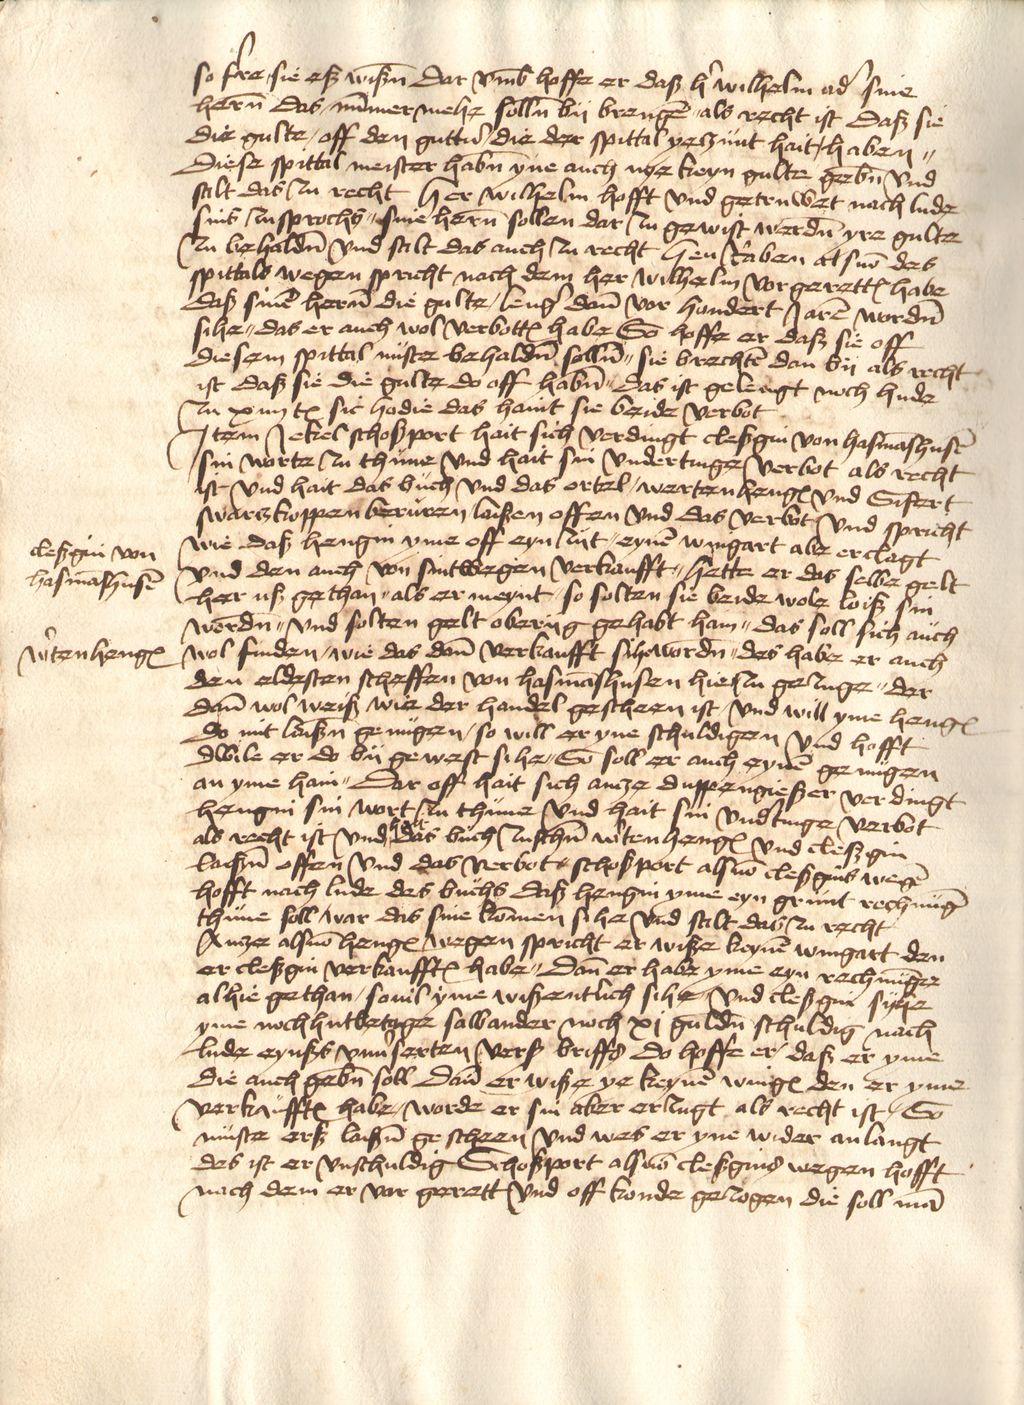 so ferre sie eß wißn̄ Dar vmb hoffe er daß h' wilhelm ad' sine
hern̄ das nūmermehe solln̄ bij brengē als recht ist Daß sie
die gulte off den guttn̄ die der spittal yeczunt hait haben
Diese spittal meister habn̄ yne auch nye keyn gulte gebn̄ vnd
stilt das zu recht Her wilhelm hofft vnd getruwet nach lude
sins zusprochs sine hern̄ sollen dar zu gewist werdn̄ yre gulte
zu behaldn̄ vnd stilt das auch zu recht Hen raben als vō des
spittals wegen spricht nach dem her wilhelm vorgerett habe
daß sinē hern̄ die gulte leng' dañ vor hondert Jarē wordn̄
sihe das er auch wol verbott habe So hoffe er daß sie off
diesem spittal nuste behaldn̄ solln̄ sie brechtē dan bij als recht
ist daß sie die gulte do off habn̄ das ist gelengt noch hude
zu xiiij t sic hodie das haint sie beide verbot
Item Jekel schoßport hait sich verdingt cleßgin von hasmāshusē
sin worte zu thune vnd hait sin vndertinge verbot als recht
ist vnd hait das buch vnd das ortel wertenheng vnd Sifert
swarczkoppen beruren laißen offen vnd das verbot vnd spricht
wie daß hengin yme off eyn zijt eynē wingart abe erclagt
vnd den auch von sint wegen verkaufft Hette er das selbe gelt
her uß gethan als er meynt so solten sie beide wole loiß sin
wordn̄ vnd solten gelt oberig gehabt han das soll sich auch
wol finden wie das dañ verkaufft sihe wordn̄ des habe er auch
den eldesten scheffen von hasmāshusen hie zu geczuge der
dañ wol weiß wie der handel gescheen ist vnd will yme heng
do mit laißn̄ genugen so will er yne schuldigen vnd hofft
dwile er do bij gewest sihe So soll er auch eynē genugen
an yme han Dar off hait sich ancze duppengießer verdingt
hengin sin wort zu thune vnd hait sin vnd'tinge verbot
als recht ist vnd hait das buch zuschn̄ w'tenheng vnd cleßgin
laißn̄ offen vnd das verbot schoßport als vō cleßgins wegē
hofft nach lude des buchs daß hengin yme eyn grunt rechnūg
thune soll war das sine komen sihe vnd stilt das zu recht
Ancze als vō heng wegen spricht er wiße keynē wingart den
er cleßgin verkaufft habe Dañ er habe yme eyn rechnūge
alhie gethan souil yme wißentlich sihe vnd cleßgin sihe
yme noch hutbetage salbander noch xj guldn̄ schuldig nach
lude eynßs vnu'serten v'sß brieffs do hoffe er daß er yme
die auch gebn̄ soll Dañ er wiße ye keynē wing den er yme
verkaufft habe worde er sin aber erzugt als recht ist So
muste erß laißn̄ gescheen vnd wes er yne wider anlangt
des ist er vnschuldig Schoßport als vō cleßgins wegen hofft
nach dem er vor gerett vnd off konde geczogen die soll mā
cleßgin von
hasmāshusē
w'tenheng